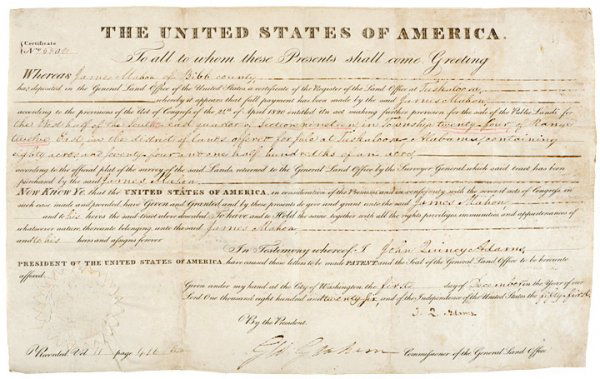 THE UNITED STATES OF AMERICA.
Certificate
No.
To all to whom these Presents shall come Greeting
Whereas James Mahon of Bibb county
has deposited in the General Land Office of the United States a certificate of the Register of the Land Office at Tuskaloosa
whereby it appears that full payment has been made by the said James Mahon
according to the provisions of the Act of Congress of the 24th of April 1820 entitled An act making further provision for the sale of the Public Lands for
the East half of the South East quarter of Section nineteen in Township twenty four of Range
twelve East in the district of lands offered for sale at Tuskaloosa Alabama, containing
eighty acres and twenty four and one half hundredths of an acre
according to the official plat of the survey of the said Lands returned to the General Land Office by the Surveyor General which said tract has been
purchased by the said James Mahon
Now Know Ye that the UNITED STATES OF AMERICA, in consideration of the Premises and in conformity with the several acts of Congress in
such case made and provided have Given and Granted and by these presents do give and grant unto the said James Mahon
and to his heirs the said tract above described To have and to Hold the same together with all the rights privileges immunities and appurtenances of
whatsoever nature thereunto belonging unto the said James Mahon
and to his heirs and assigns forever
In Testimony whereof I John Quincy Adams
PRESIDENT OF THE UNITED STATES OF AMERICA, have caused these letters to be made PATENT and the Seal of the General Land Office to be hereunto
affixed.
Given under my hand at the City of Washington the first day of December in the Year of our
Lord One thousand eight hundred and twenty six and of the Independence of the United States the fifty first
J. Q. Adams
By the President.
Geo Graham Commissioner of the General Land Office
Recorded Vol 11 page 416